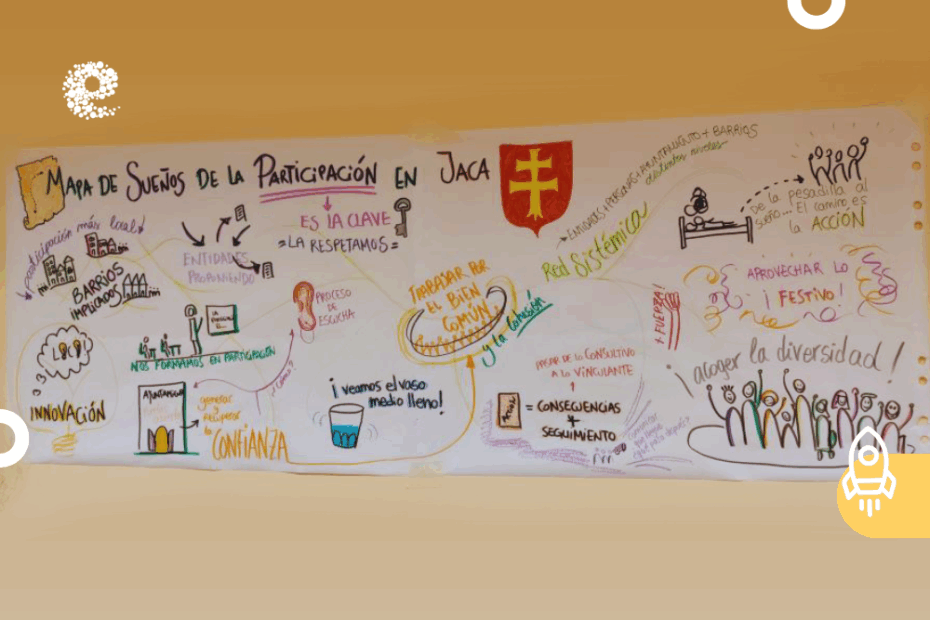 MAPA DE SUEÑOS DE LA PARTICIPACIÓN EN JACA
ES LA CLAVE
=LA RESPETAMOS=
participación más local
BARRIOS
IMPLICADOS
ENTIDADES
PROPONIENDO
INNOVACIÓN
NOS FORMAMOS EN PARTICIPACIÓN
PROCESO
DE
ESCUCHA
AYUNTAMIENTO
generar
y
recuperar
la
CONFIANZA
¡veamos el vaso
medio lleno!
TRABAJAR POR
EL BIEN
COMÚN
y la Cohesión
Red Sistémica
ENTIDADES + PERSONAS + AYUNTAMIENTO + BARRIOS
distintos niveles
PASAR DE lo CONSULTIVO
A lo VINCULANTE
= CONSECUENCIAS
+
SEGUIMIENTO
De la pesadilla al
sueño... El camino es
la ACCIÓN
+ FUERZA!
APROVECHAR LO
¡FESTIVO!
¡acoger la diversidad!